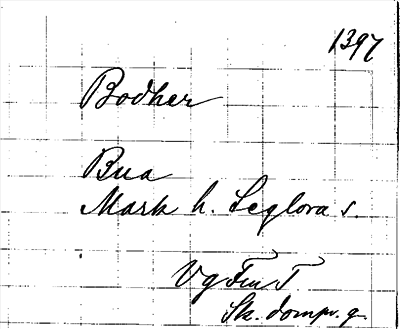 1397
Bodher
Bua
Mark h. Seglora s.
Vg Fru T
Sk. dompr. g.